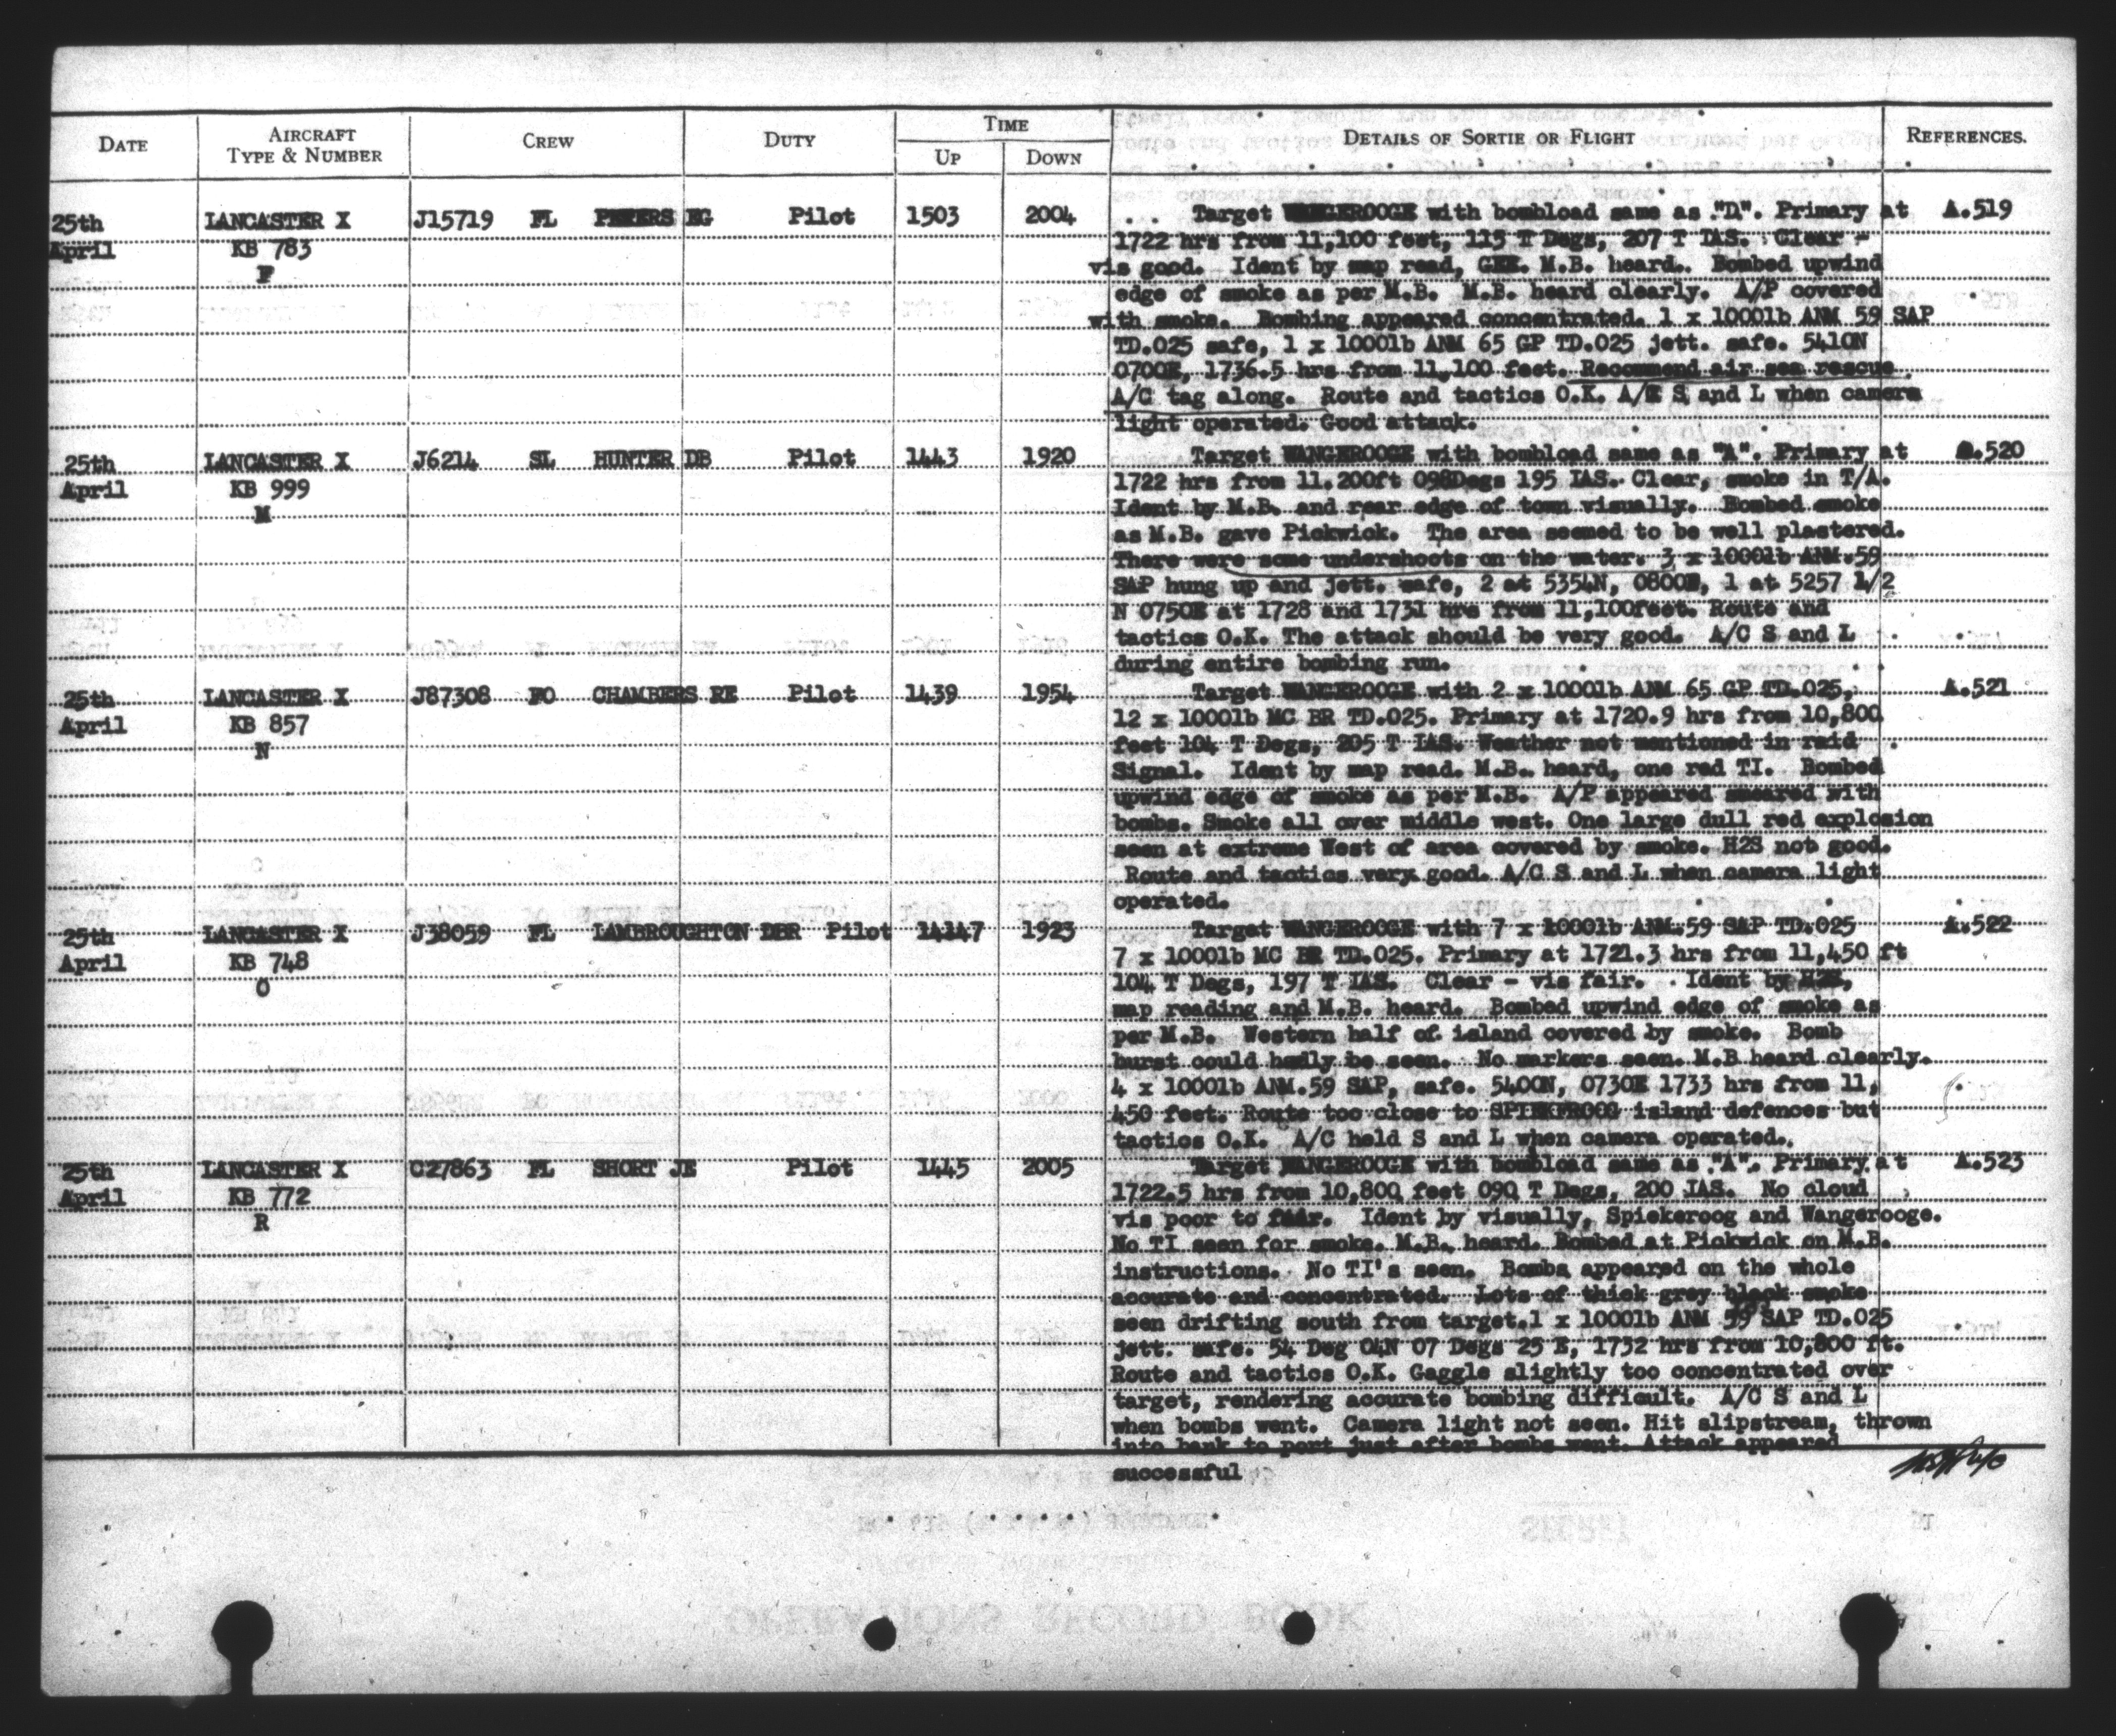 DATE AIRCRAFT TYPE & NUMBER CREW DUTY TIME UP DOWN DETAILS OF SORTIE OR FLIGHT REFERENCES.
25th LANCASTER X J15719 FL PETERS EG Pilot 1503 2004 . . Target WANGEROOGE with bombload same as "D". Primary at A.519
April KB 783 1722 hrs from 11,100 feet, 115 T Degs, 207 T IAS. Clear -
F vis good. Ident by map read, GEE. M.B. heard. Bombed upwind
edge of smoke as per M.B. M.B. heard clearly. A/P covered
with smoke. Bombing appeared concentrated. 1 x 1000lb ANM 59 SAP
TD.025 safe, 1 x 1000lb ANM 65 GP TD.025 jett. safe. 5410N
0700E, 1736.5 hrs from 11,100 feet. Recommend air sea rescue
A/C tag along. Route and tactics O.K. A/C S and L when camera
light operated. Good attack.
25th LANCASTER X J6214 SL HUNTER DB Pilot 1443 1920 Target WANGEROOGE with bombload same as "A". Primary at A.520
April KB 999 1722 hrs from 11.200ft 098Degs 195 IAS. Clear, smoke in T/A.
M Ident by M.B. and rear edge of town visually. Bombed smoke
as M.B. gave Pickwick. The area seemed to be well plastered.
There were some undershoots on the water. 3 x 1000lb ANM.59
SAP hung up and jett. safe, 2 at 5354N, 0800E, 1 at 5257 1/2
N 0750E at 1728 and 1731 hrs from 11,100feet. Route and
tactics O.K. The attack should be very good. A/C S and L
during entire bombing run.
25th LANCASTER X J87308 FO CHAMBERS RE Pilot 1439 1954 Target WANGEROOGE with 2 x 1000lb ANM 65 GP TD.025, A.521
April KB 857 12 x 1000lb MC BR TD.025. Primary at 1720.9 hrs from 10,800
N feet 104 T Degs, 205 T IAS. Weather not mentioned in raid
Signal. Ident by map read. M.B. heard, one red TI. Bombed
upwind edge of smoke as per M.B. A/P appeared smeared with
bombs. Smoke all over middle west. One large dull red explosion
seen at extreme West of area covered by smoke. H2S not good.
Route and tactics very good. A/C S and L when camera light
operated.
25th LANCASTER X J38059 FL LAMBROUGHTON DBR Pilot 14147 1923 Target WANGEROOGE with 7 x 1000lb ANM.59 SAP TD.025 A.522
April KB 748 7 x 1000lb MC BR TD.025. Primary at 1721.3 hrs from 11,450 ft
O 104 T Degs, 197 T IAS. Clear - vis fair. Ident by H2S,
map reading and M.B. heard. Bombed upwind edge of smoke as
per M.B. Western half of island covered by smoke. Bomb
burst could hadly be seen. No markers seen. M.B heard clearly.
4 x 1000lb ANM.59 SAP, safe. 5400N, 0730E 1733 hrs from 11,
450 feet. Route too close to SPIEKEROOG island defences but
tactics O.K. A/C held S and L when camera operated.
25th LANCASTER X C27863 FL SHORT JE Pilot 1445 2005 Target WANGEROOGE with bombload same as "A". Primary at A.523
April KB 772 1722.5 hrs from 10,800 feet 090 T Degs, 200 IAS. No cloud
R vis poor to fair. Ident by visually, Spiekeroog and Wangerooge.
No TI seen for smoke. M.B. heard. Bombed at Pickwick on M.B.
instructions. No TI's seen. Bombs appeared on the whole
accurate and concentrated. Lots of thick grey black smoke
seen drifting south from target.1 x 1000lb ANM 59 SAP TD.025
jett. safe. 54 Deg 04N 07 Degs 25 E, 1732 hrs from 10,800 ft.
Route and tactics O.K. Gaggle slightly too concentrated over
target, rendering accurate bombing difficult. A/C S and L
when bombs went. Camera light not seen. Hit slipstream, thrown
into bank to port just after bombs went. Attack appeared
successful